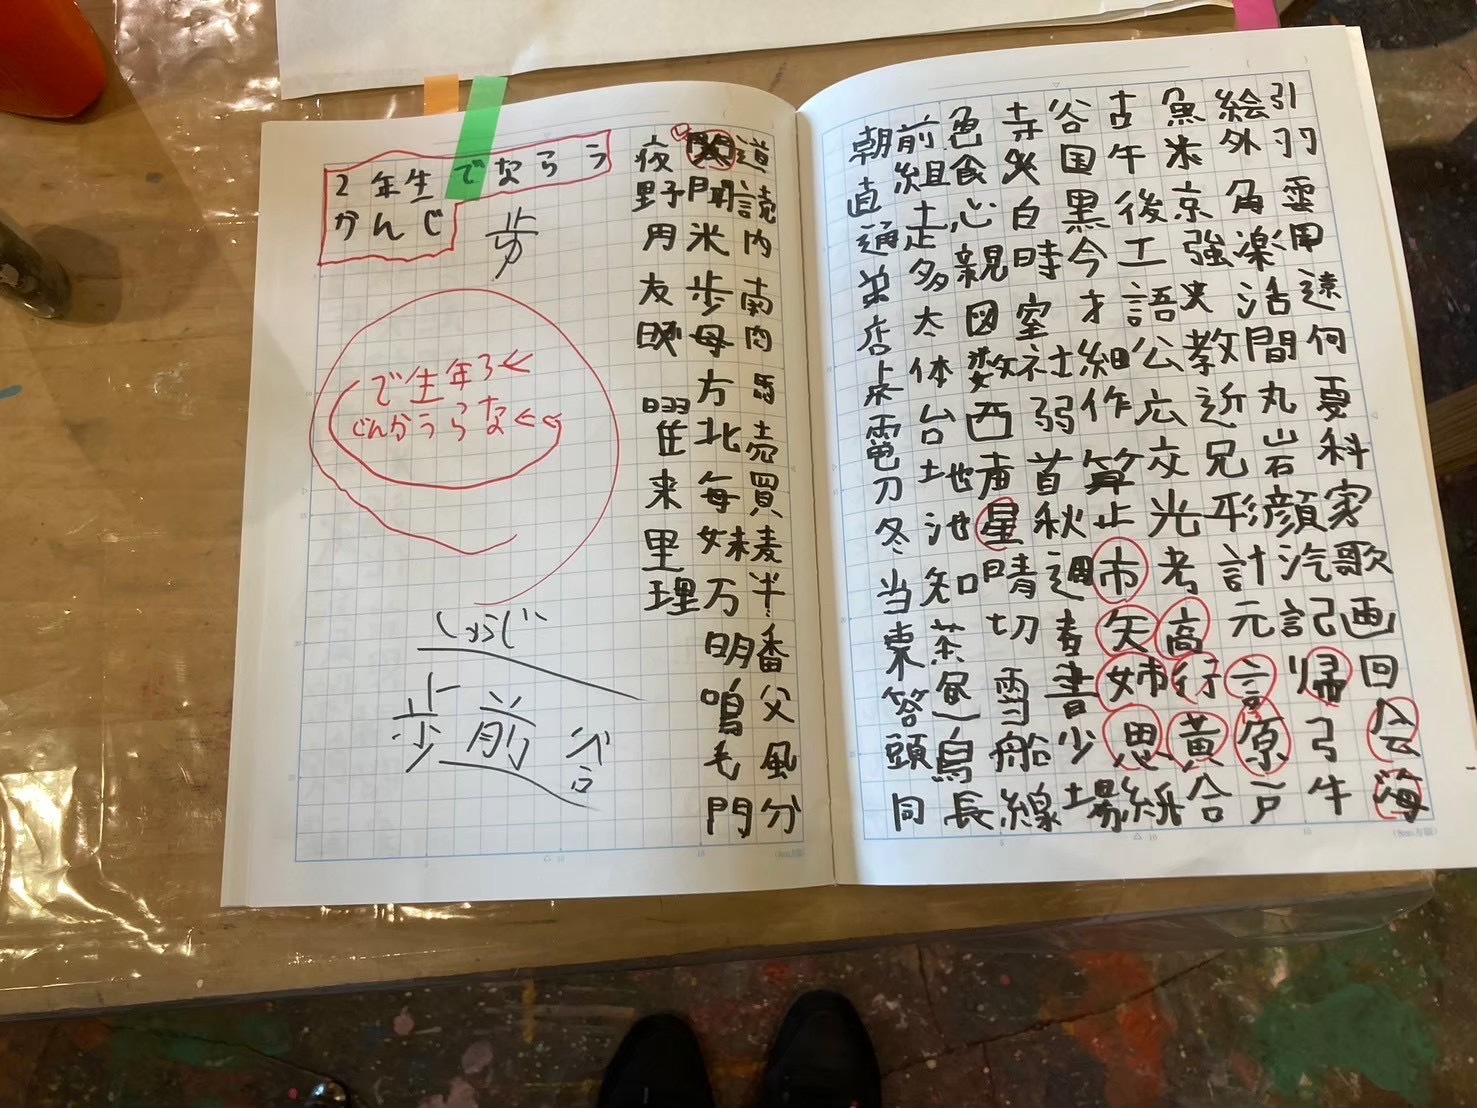 引羽雲用遠何夏科家歌画回会海
絵外角楽活間丸岩顔汽記帰弓牛
魚米京強教近兄形計元言原戸
古午後工語公広交光考高行黄合
谷国黒今才細作算止市矢姉思紙
寺火白時室社弱首秋週春書少場
色食心親図数西声星晴切雪船線
前組走多太体台地池知茶昼鳥長
朝直通弟店点電刀冬当東答頭同
道読内南肉馬売買麦半番父風分
聞米歩母方北毎妹万明鳴毛門
夜野用友曜来里理
2年生でならう
かんじ
歩
で生年ろ←
じんかうらな←←
歩前